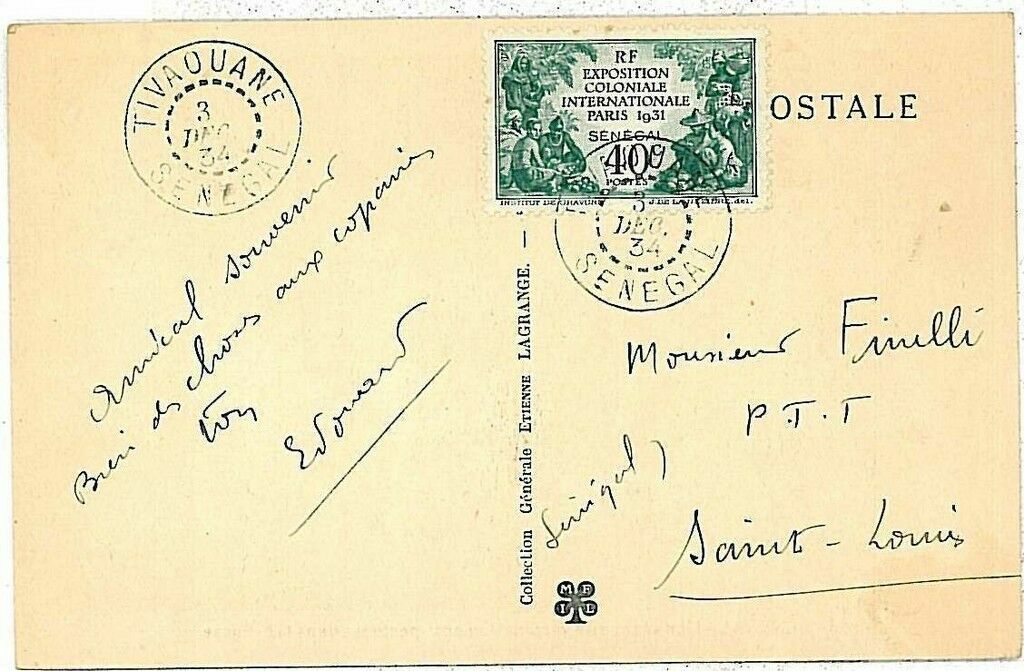 TIVAOUANE
3
DEC.
34
SENEGAL
Amical souvenir
Bien des choses aux copains
Ton
Edouard
Collection Générale ETIENNE LAGRANGE. —
M F
I L
RF
EXPOSITION
COLONIALE
INTERNATIONALE
PARIS 1931
SÉNÉGAL
40c
POSTES
INSTITUT DE GRAVURE
J. DE LA NEZIERE. del.
3
DEC.
34
SENEGAL
OSTALE
Monsieur Finelli
P.T.T
Saint-Louis
Sénégal)